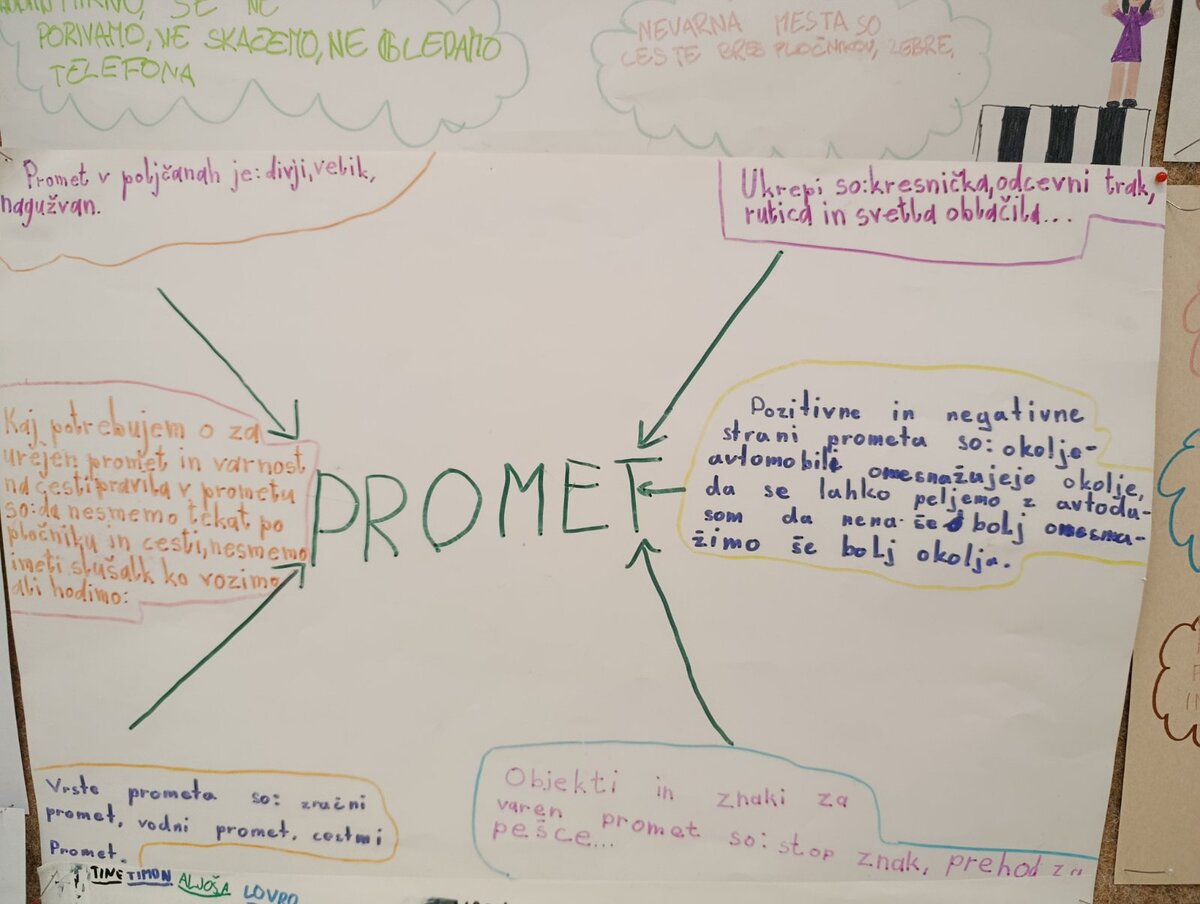 HODIMO MIRNO, SE NE
PORIVAMO, NE SKAČEMO, NE GLEDAMO
TELEFONA
NEVARNA MESTA SO
CESTE BRES PLOČNIKOV, ZEBRE,
Promet v poljčanah je: divji, velik,
nagužvan.
Ukrepi so: kresnička, odcevni trak,
rutica in svetla oblačila...
Kaj potrebujem o za
urejen promet in varnost
na cesti pravila v prometu
so: da nesmemo tekat po
pločniku in cesti, nesmemo
imeti slušalk ko vozimo
ali hodimo:
PROMET
Pozitivne in negativne
strani prometa so: okolje-
avtomobili omesnažujejo okolje,
da se lahko peljemo z avtodu-
som da nena-še bolj omesna-
žimo še bolj okolja.
Vrste prometa so: zračni
promet, vodni promet, cestmi
Promet.
Objekti in znaki za
varen promet so: stop znak, prehod za
pešce...
TINE TIMON ALJOŠA LOVRO